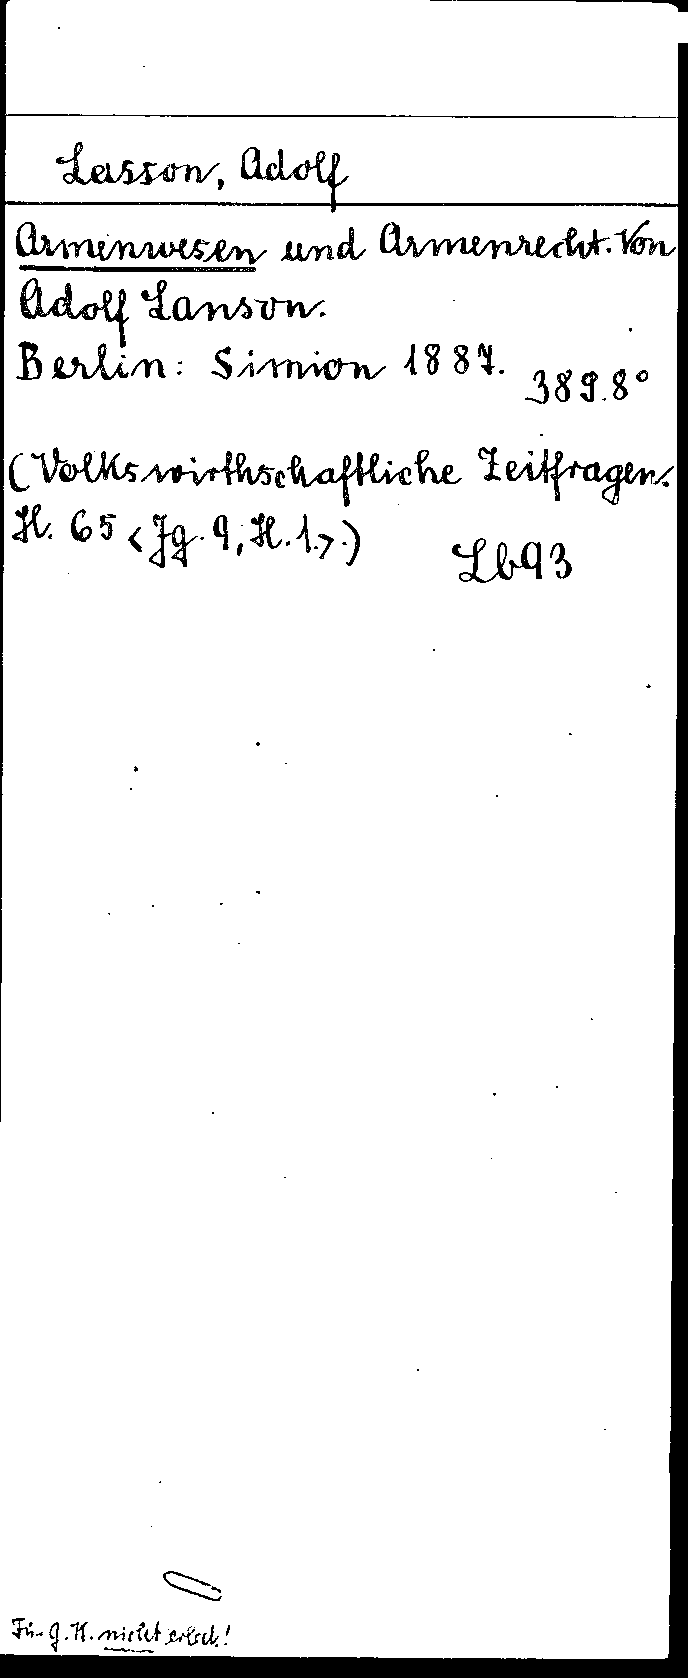 Lasson, Adolf
Armenwesen und Armenrecht. Von
Adolf Lanson.
Berlin: Simion 1887.
389.8°
(Volkswirthschaftliche Zeitfragen.
H. 65 <Jg. 9, H. 1.>.)
Lb93
Für g. K. nicht erled.!